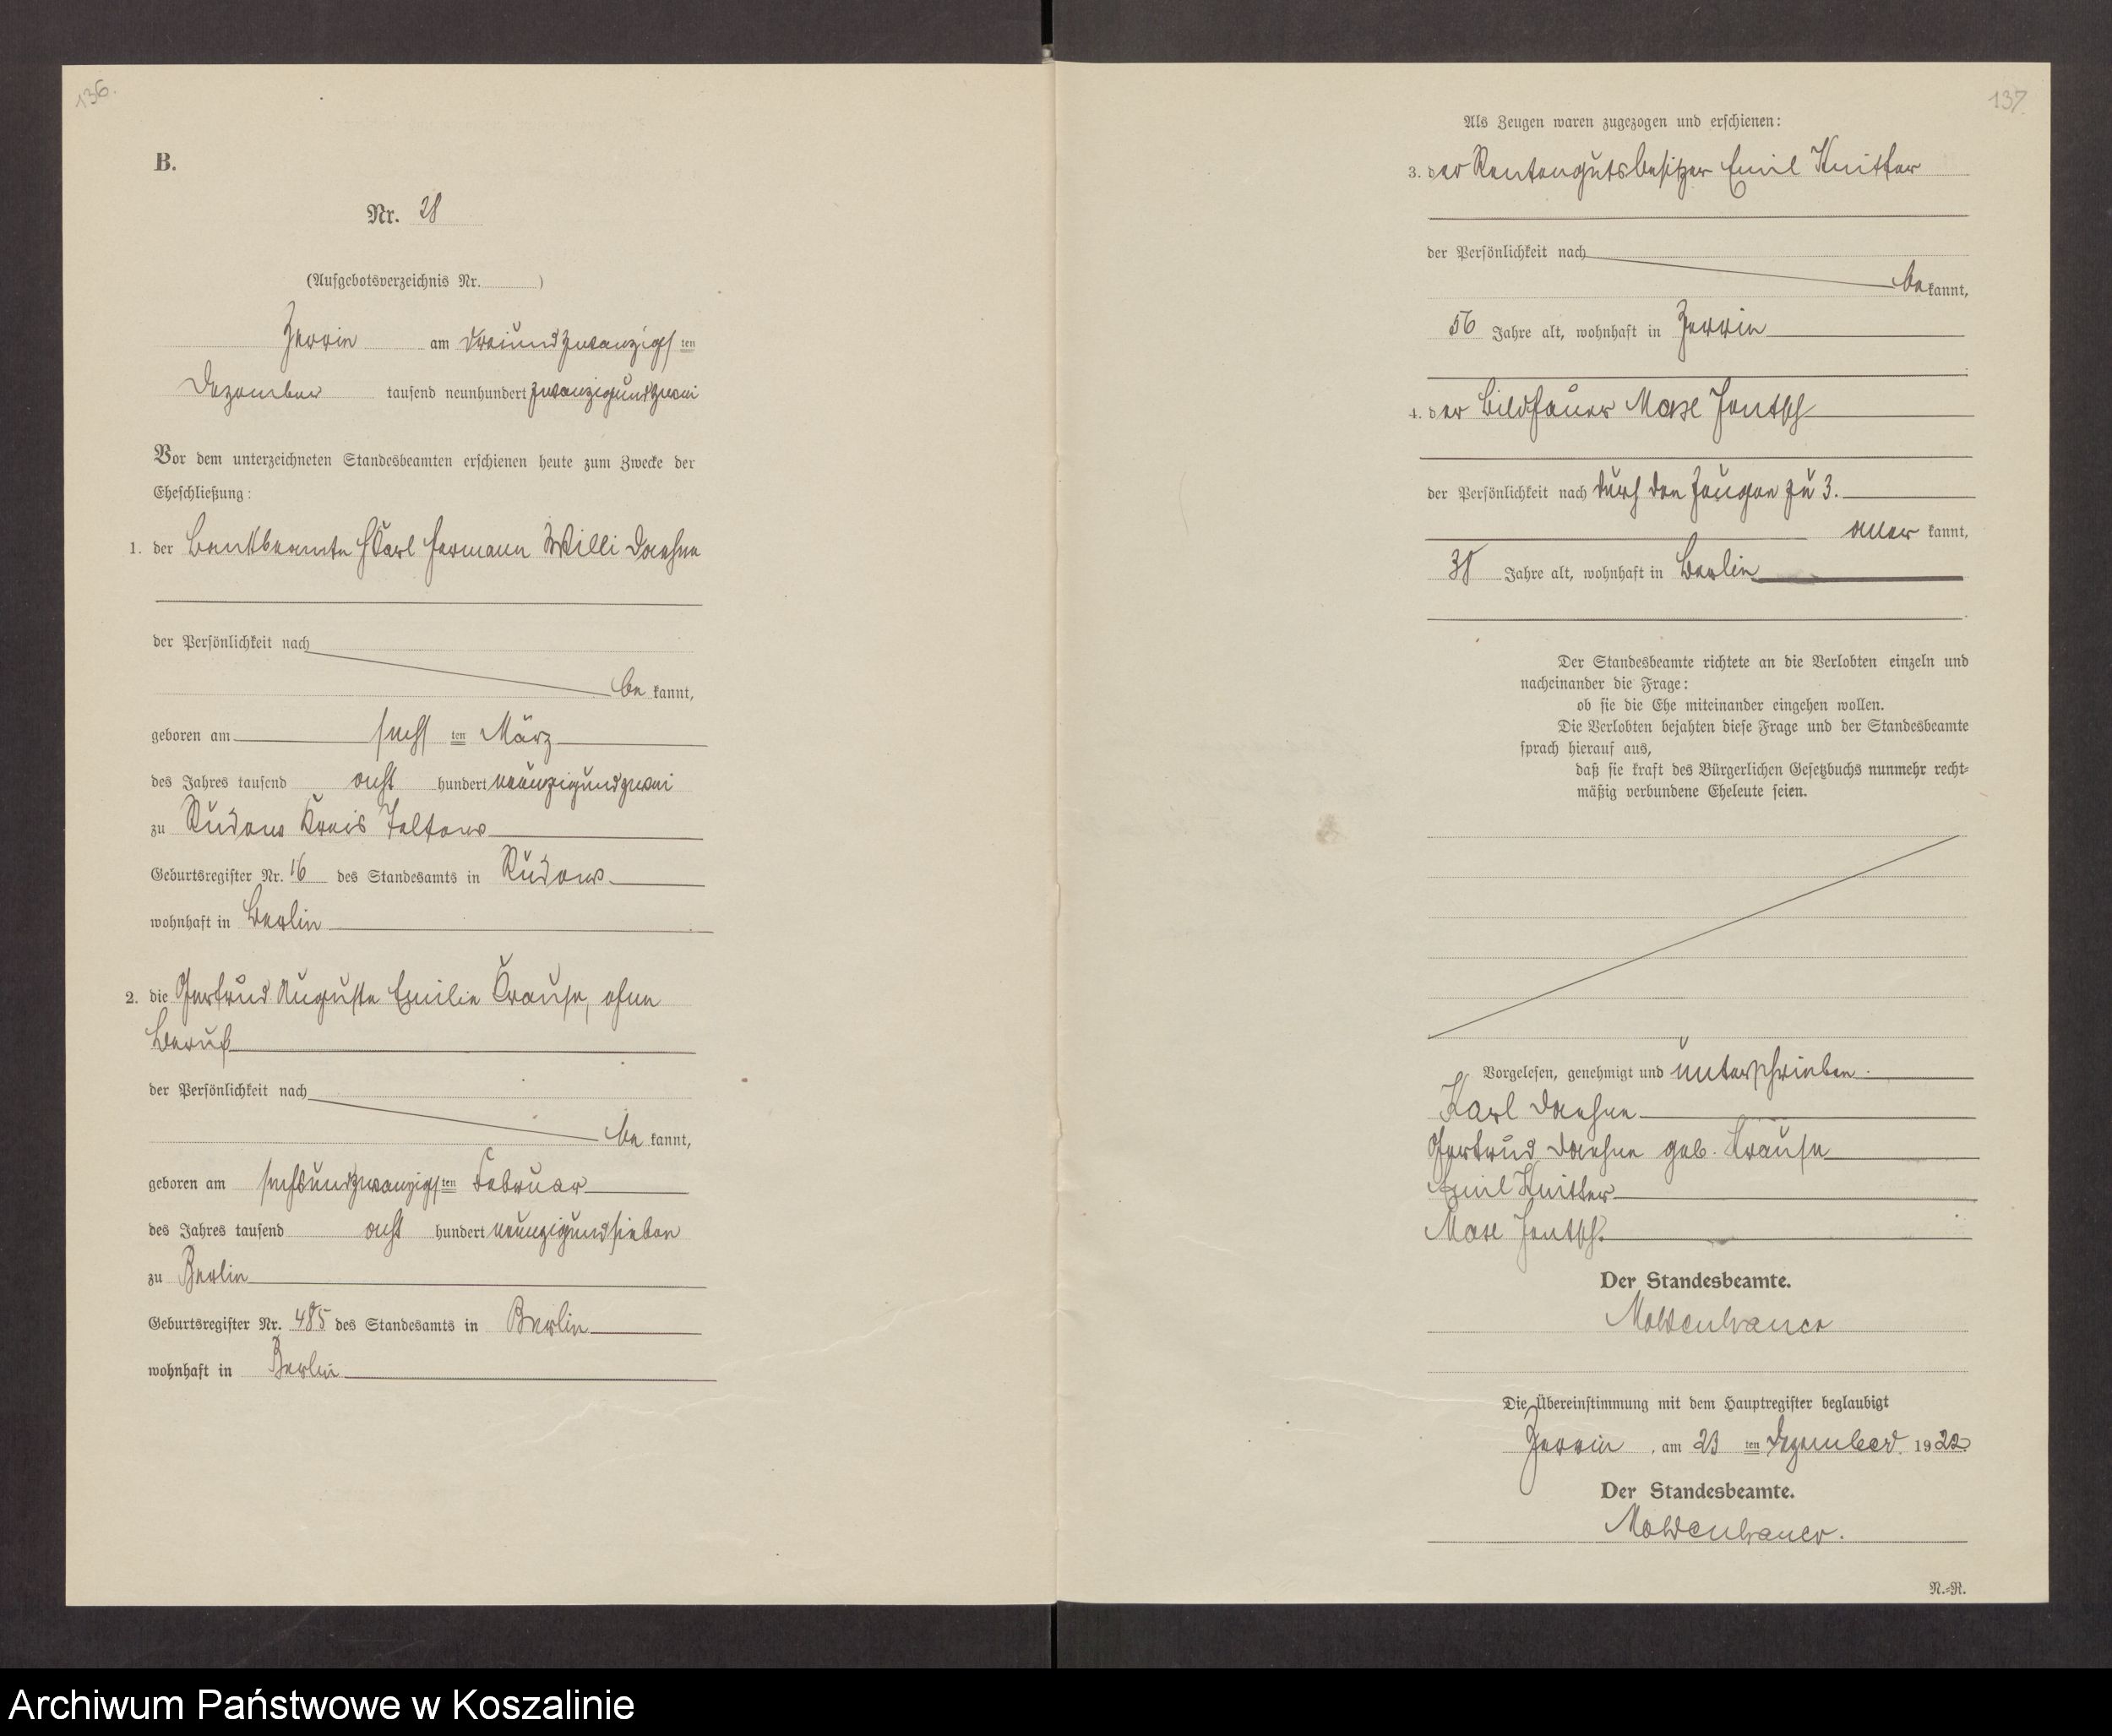 136.
B.
Nr. 28
(Aufgebotsverzeichnis Nr. )
Zerrin am dreiundzwanzigsten
Dezember tausend neunhundert zwanzigundzwei
Vor dem unterzeichneten Standesbeamten erschienen heute zum Zwecke der
Eheschließung:
1. der Bankbeamte Karl Hermann Willi Daehne
der Persönlichkeit nach
be kannt,
geboren am sechsten März
des Jahres tausend acht hundert neunzigundzwei
zu Rudow Kreis Teltow
Geburtsregister Nr. 16 des Standesamts in Rudow
wohnhaft in Berlin
2. die Gertrud Auguste Emilie Krause, ohne
Beruf
der Persönlichkeit nach
be kannt,
geboren am sechsundzwanzigsten Februar
des Jahres tausend acht hundert neunzigundsieben
zu Berlin
Geburtsregister Nr. 485 des Standesamts in Berlin
wohnhaft in Berlin
137
Als Zeugen waren zugezogen und erschienen:
3. der Rentengutsbesitzer Emil Knitter
der Persönlichkeit nach
be kannt,
56 Jahre alt, wohnhaft in Zerrin
4. der Bildhauer Max Jentsch
der Persönlichkeit nach durch den Zeugen zu 3.
aner kannt,
38 Jahre alt, wohnhaft in Berlin
Der Standesbeamte richtete an die Verlobten einzeln und
nacheinander die Frage:
ob sie die Ehe miteinander eingehen wollen.
Die Verlobten bejahten diese Frage und der Standesbeamte
sprach hierauf aus,
daß sie kraft des Bürgerlichen Gesetzbuchs nunmehr recht-
mäßig verbundene Eheleute seien.
Vorgelesen, genehmigt und unterschrieben.
Karl Daehne
Gertrud Daehne geb. Krause
Emil Knitter
Max Jentsch.
Der Standesbeamte.
Moldenhauer
Die Übereinstimmung mit dem Hauptregister beglaubigt
Zerrin, am 23 ten Dezember 1922
Der Standesbeamte.
Moldenhauer.
N.-R.
Archiwum Państwowe w Koszalinie